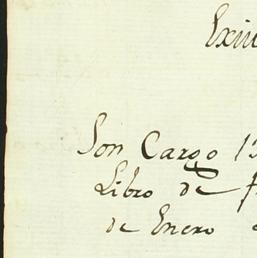 Son Cargo
Libro de
de Enero